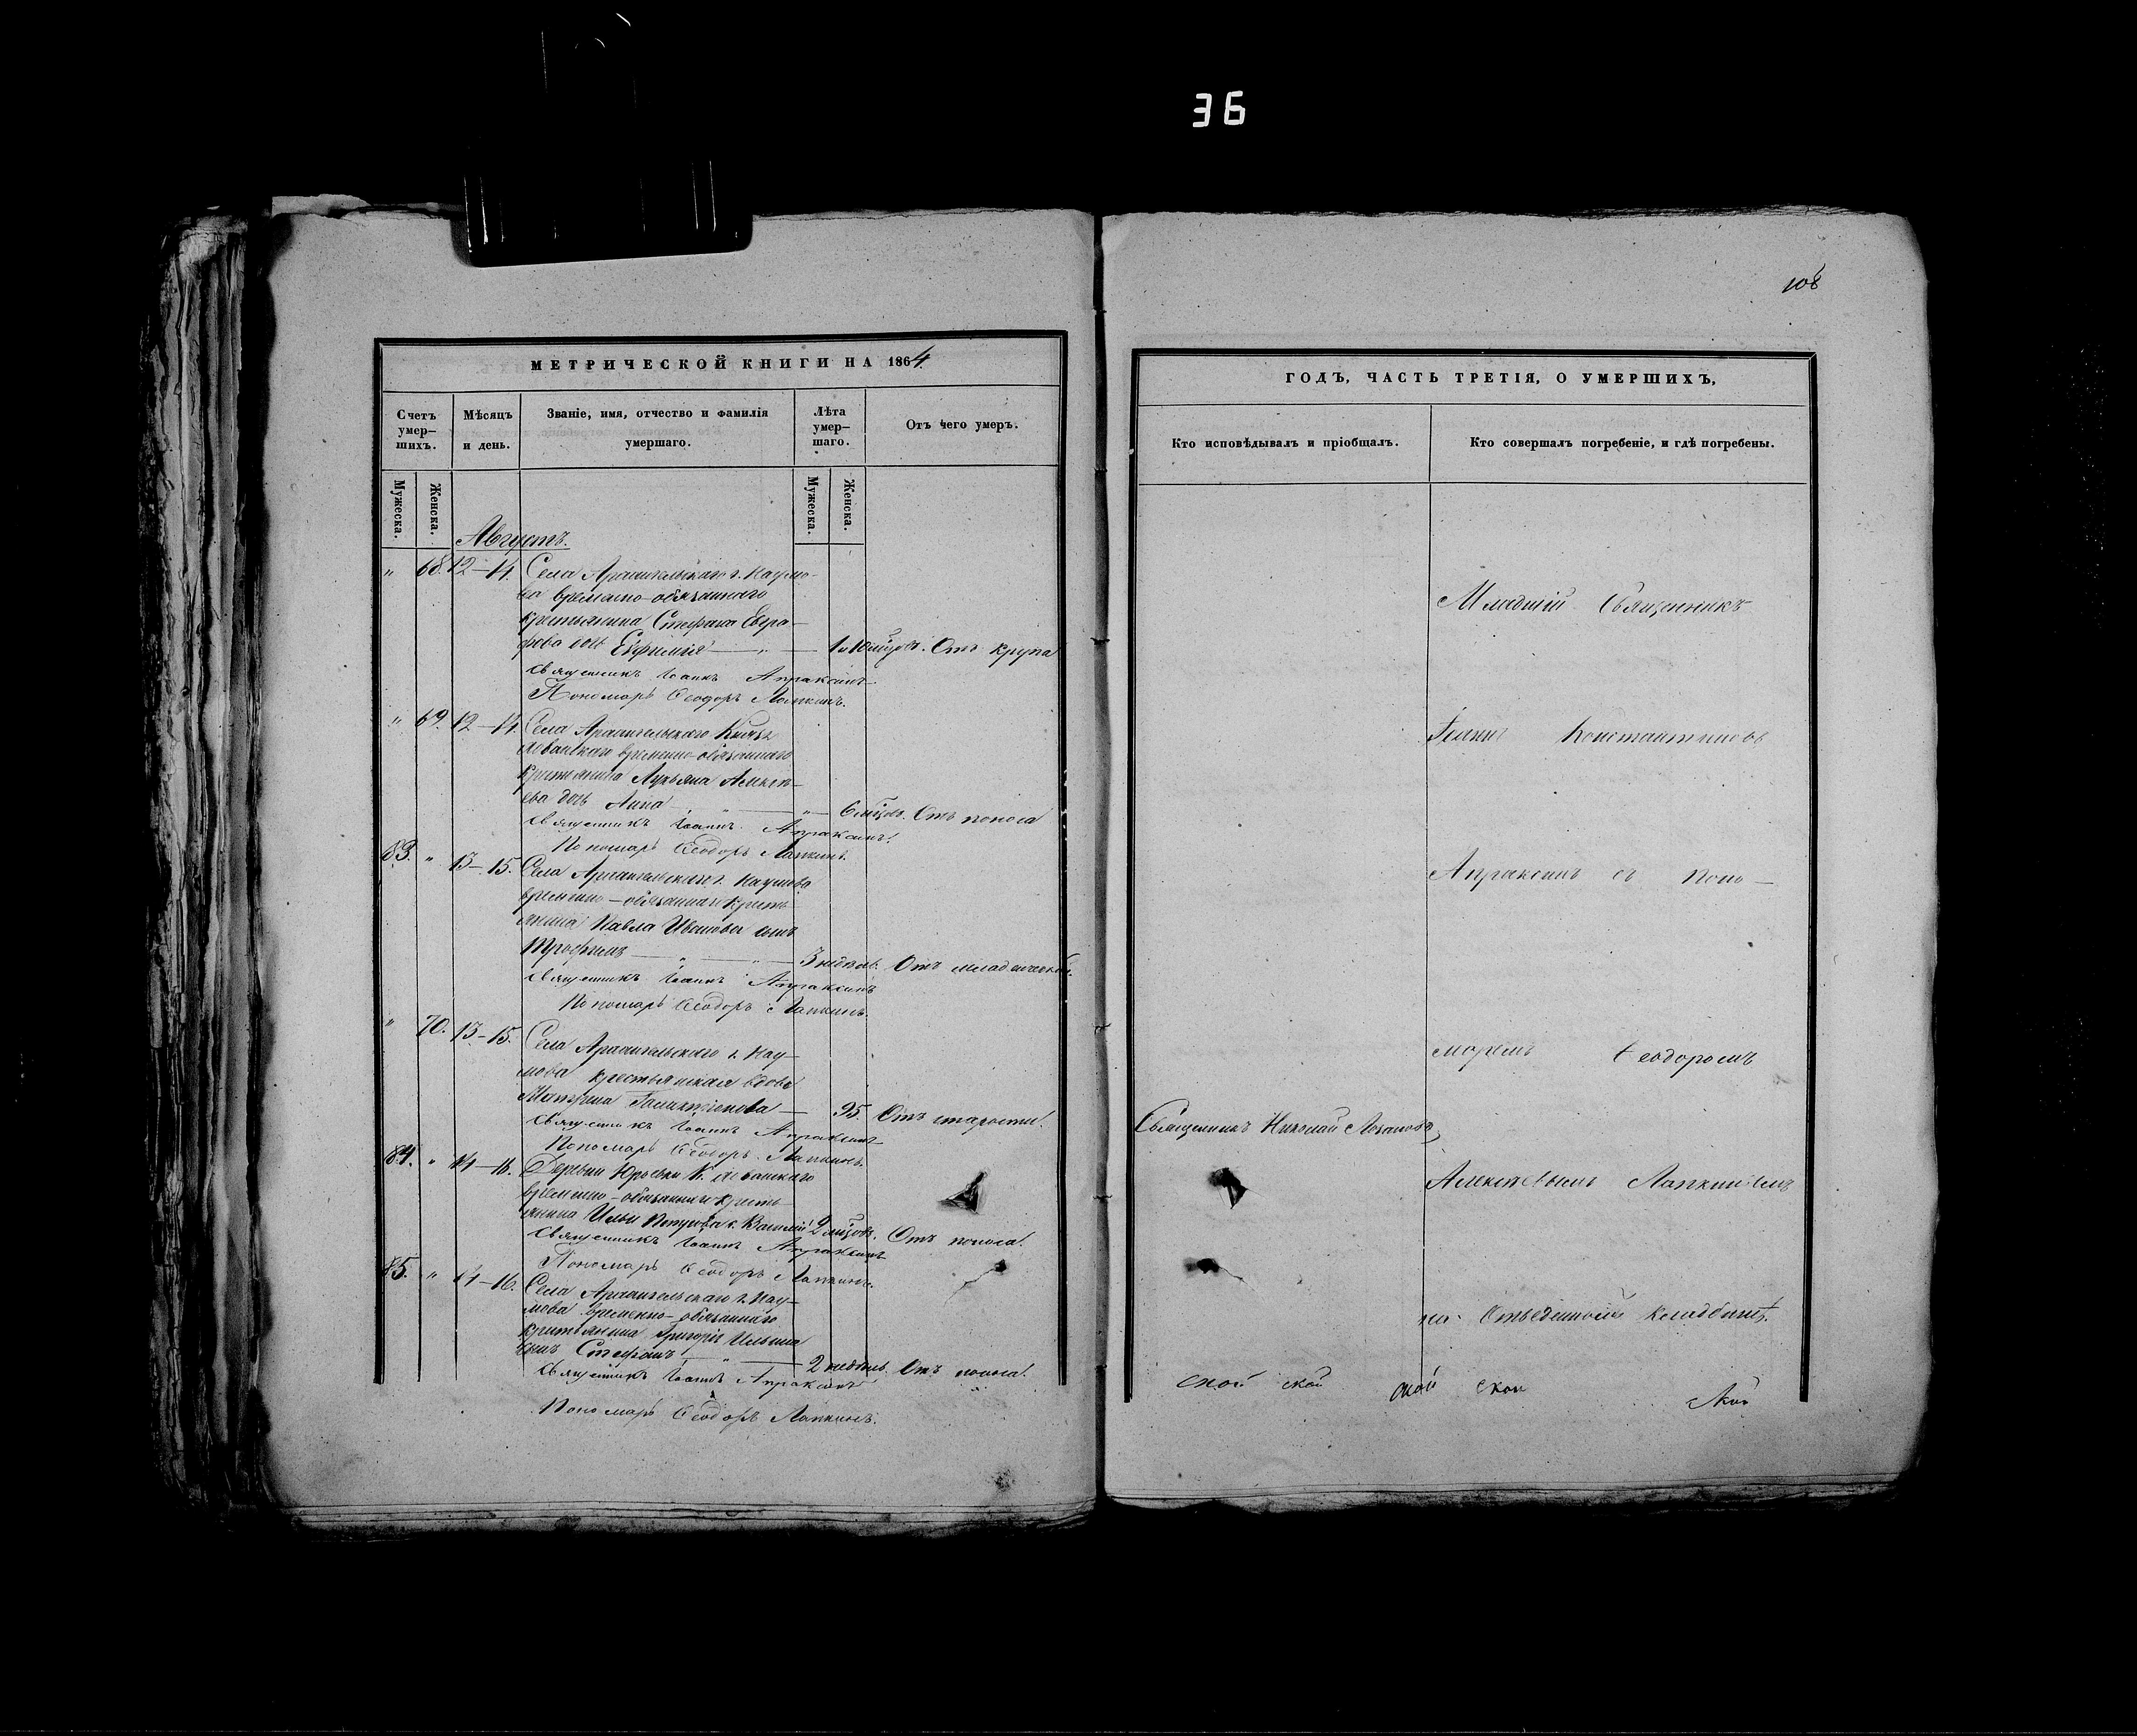 36
108
МЕТРИЧЕСКОЙ КНИГИ НА 1864
Счетъ умер–шихъ.
Мѣсяцъ и день.
Званіе, имя, отчество и фамилія умершаго.
Лѣта умер–шаго.
Отъ чего умеръ.
Мужеска.
Женска.
Мужеска.
Женска.
Августъ.
" 68. 12–14. Села Архангельскаго г. Наумо-
ва временно-обязаннаго
крестьянина Стефана Евгра-
фова дочь Евфимія — " — 1 и 10 мѣцов. Отъ крупа
Священникъ Іоаннъ Апраксинъ.
Пономарь Ѳеодоръ Лапкинъ.
" 69. 12–14. Села Архангельскаго Князя
временно-обязаннаго
крестьянина Лукьяна Алексѣ-
ева дочь Анна — " — " — 6 мѣцов. Отъ поноса
Священникъ Іоаннъ Апраксинъ.
Пономарь Ѳеодоръ Лапкинъ.
83. " 13–15. Села Архангельскаго г. Наумова
временно-обязаннаго кресть-
янина Павла Иванова сынъ
Трофимъ — " — " — 3 недѣль. Отъ младенческой.
Священникъ Іоаннъ Апраксинъ
Пономарь Ѳеодоръ Лапкинъ.
" 70. 13–15. Села Архангельскаго г. Нау-
мова крестьянская вдова
Матрена Галактіонова — 95. Отъ старости.
Священникъ Іоаннъ Апраксинъ
Пономарь Ѳеодоръ Лапкинъ.
84. " 14–16. Деревни Юрьевки К.
временно-обязаннаго кресть-
янина Ильи с. Василій 2 мѣцов. Отъ поноса.
Священникъ Іоаннъ Апраксинъ
Пономарь Ѳеодоръ Лапкинъ.
85. " 14–16. Села Архангельскаго г. Нау-
мова временно-обязаннаго
крестьянина Григорія Ильина
сынъ Стефанъ — " — 2 недѣль. Отъ поноса.
Священникъ Іоаннъ Апраксинъ
Пономарь Ѳеодоръ Лапкинъ.
ГОДЪ, ЧАСТЬ ТРЕТІЯ, О УМЕРШИХЪ,
Кто исповѣдывалъ и пріобщалъ.
Кто совершалъ погребеніе, и гдѣ погребены.
Младшій Священникъ
Іоаннъ Константиновъ
Апраксинъ съ Поно–
маремъ Ѳеодоромъ
Священникъ Николай
Алексѣевымъ Лапкинымъ
на Отведенномъ кладбищѣ.
ской ской ской ской